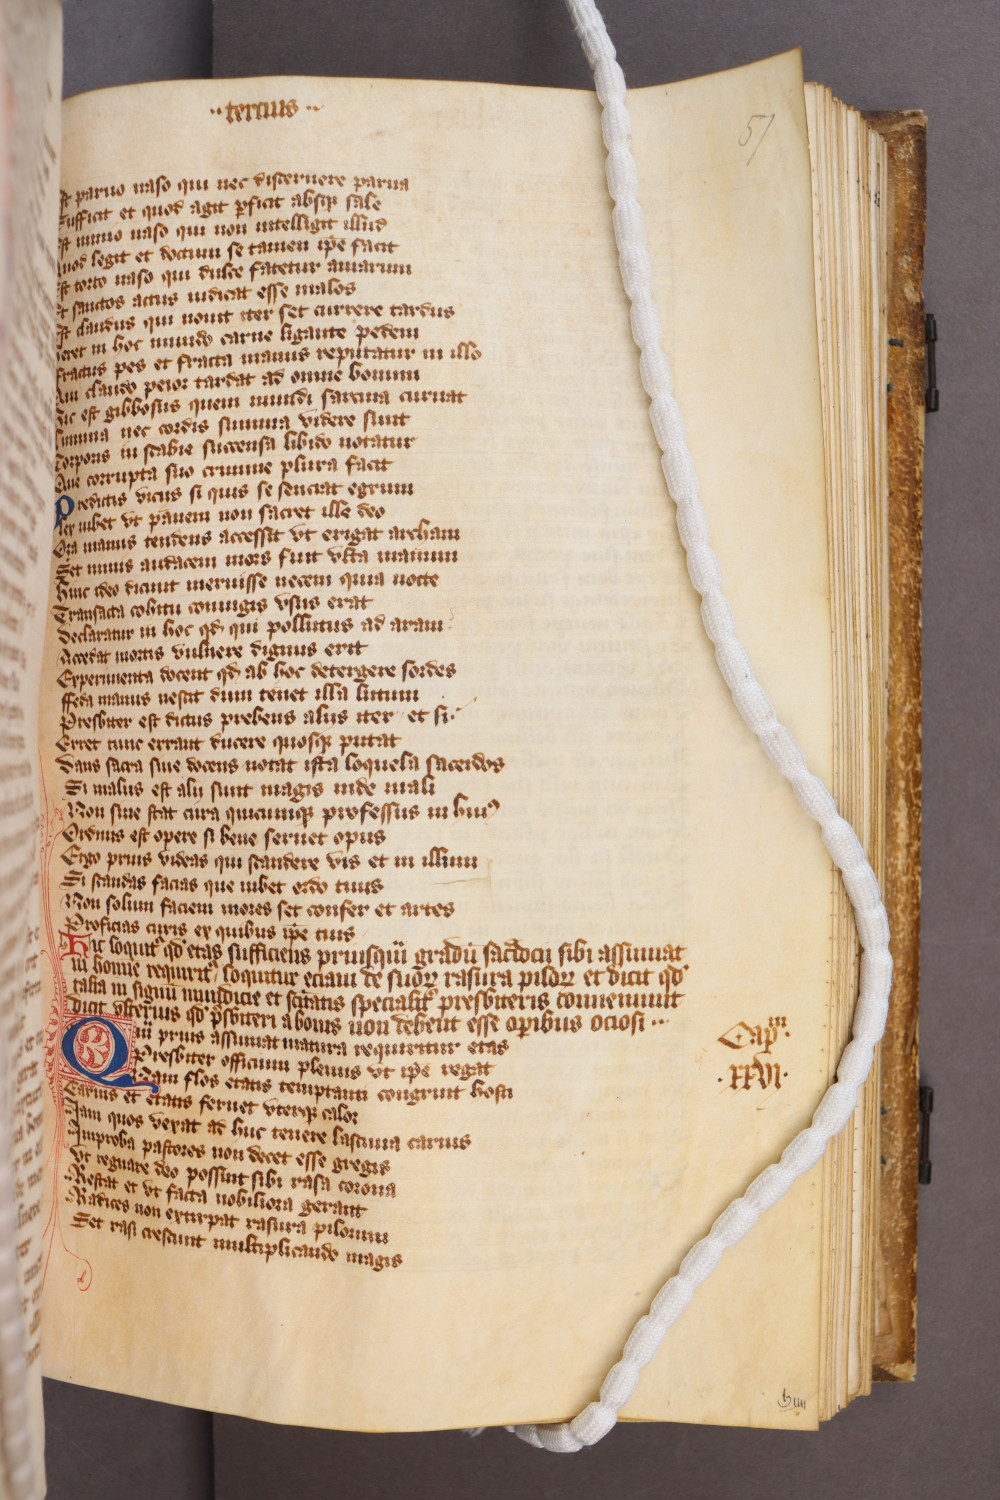 ·· tercius ··
57
Est paruo naso qui nec discernere parua
Sufficit et quod agit ꝑficit absqꝫ sale
Est nimio naso qui non intelligit illud
Quod legit et doctum se tamen ip̄e facit
Est torto naso qui dulce fatetur amarum
Et sanctos actus iudicat esse malos
Est claudus qui nouit iter set currere tardus
heret in hoc mundo carne ligante pedem
Fractus pes et fracta manus reputatur in illo
Qui claudo peior tardat ad omne bonum
Sic est gibbosus quem mundi sarcina curuat
Summa nec cordis lumina videre sinit
Corporis in scabie succensa libido notatur
Que corrupta suo crimine plura facit
Predictis vicus si quis se senciat egrum
lex iubet vt panem non sacret ille deo
Oza manus tendens accessit vt erigat archam
Set nimis audacem mors fuit vlta manum
Hinc ideo dicunt meruisse necem quia nocte
Transacta cohitu coniugis vsus erat
Declaratur in hoc qd̄ qui pollutus ad aram
Accedat mortis vulnere dignus erit
Experimenta docent qd̄ ab hoc detergere sordes
ffeda manus nescit dum tenet illa lutum
Presbiter est dictus prebens aliis iter et si
Erret tunc errant ducere quosqꝫ putat
Dans sacra siue docens notat ista loquela sacerdos
Si malus est alij sunt magis inde mali
Non sine stat cura quicumqꝫ professus in huiꝰ
Ordinis est opere si bene seruet opus
Ergo prius videas qui scandere vis et in illum
Si scandas facias que iubet ordo tuus
Non solum faciem mores set confer et artes
Proficias curis ex quibus ip̄e tuis
Hic loquitꝛ qd̄ etas sufficiens priusquā gradū sac̄docij sibi assumat
in homine requiritꝛ loquitur eciam de suoꝝ rasura piloꝝ et dicit qd̄
talia in signū mundicie et sc̄itatis specialitꝛ presbiteris conueniunt
dicit vlterius qd̄ p̄sbiteri a bonis non debent esse opibus ociosi ···
Quū prius assumat matura requiritur etas
Presbiter officium plenius vt ip̄e regat
Nam flos etatis temptanti congruit hosti
Carnis et etatis feruet vterqꝫ calor
Cap̄m·
·XXVI·
Nam quos vexat ad huc tenere lasciuia carnis
Improba pastores non decet esse gregis
Vt regnare deo possint sibi rasa corona
Restat et vt facta nobiliora gerant
Radices non extirpat rasura pilorum
Set rasi crescunt multiplicando magis
h iiij